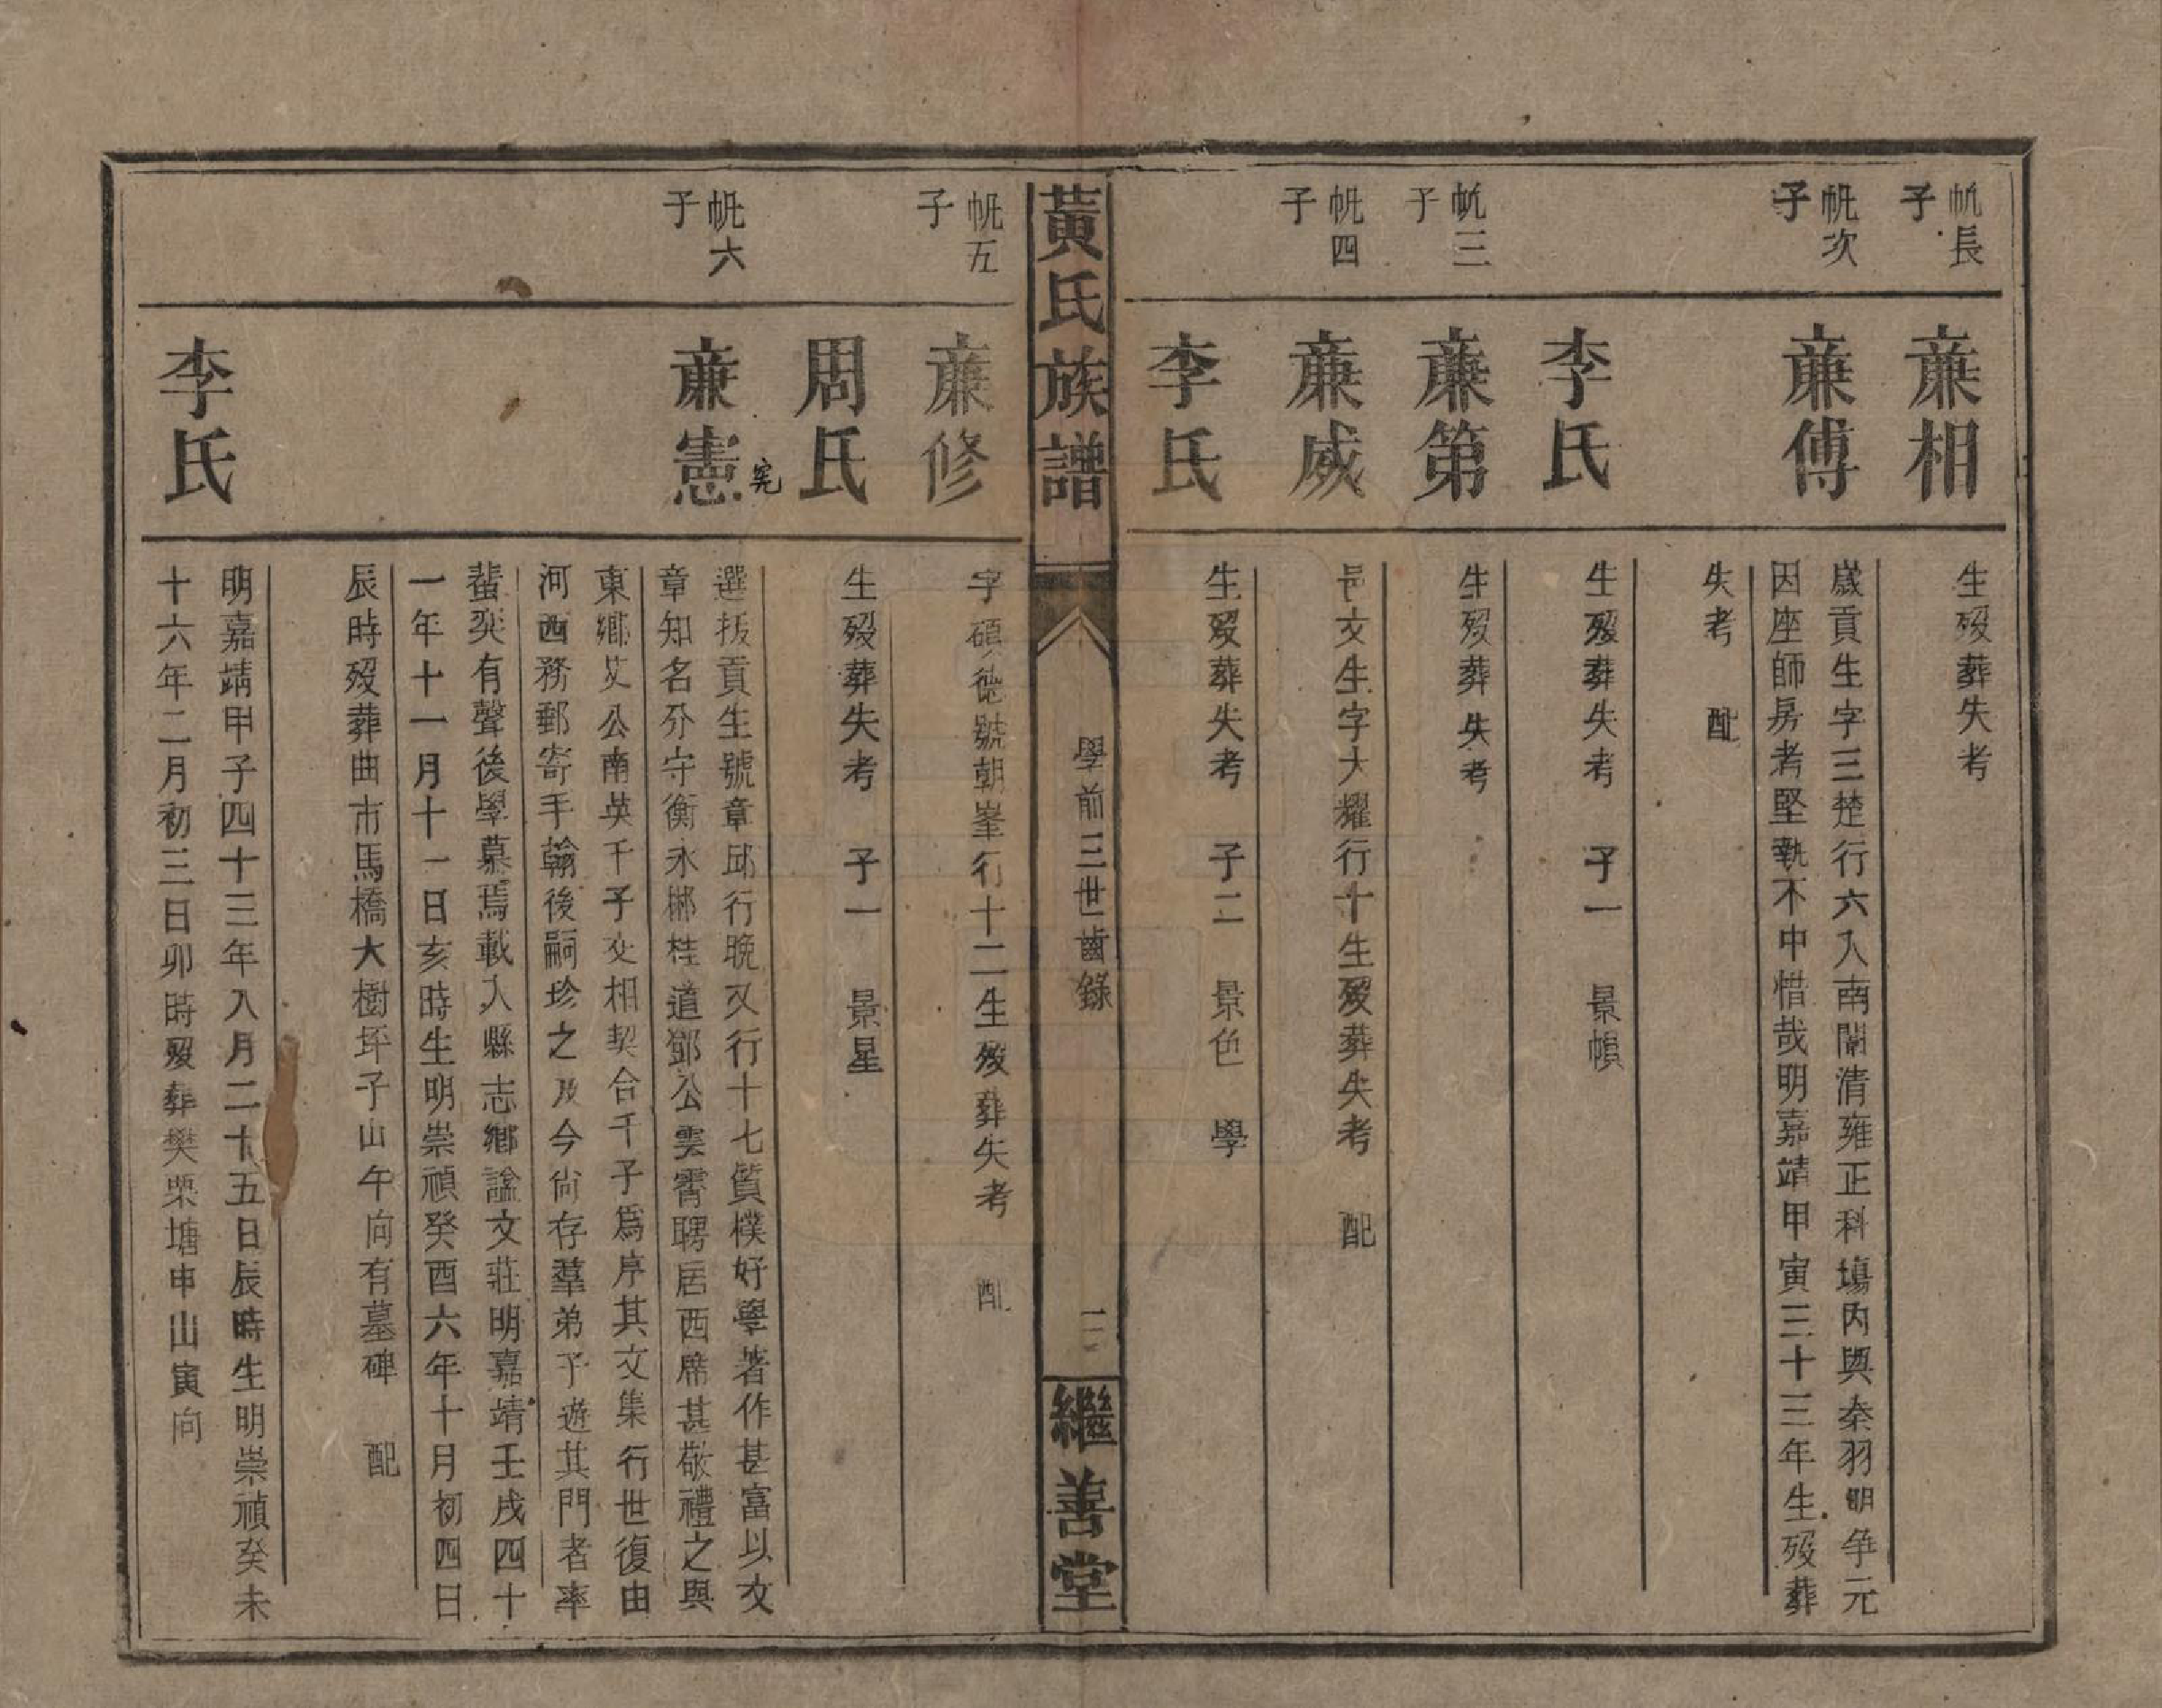 帆長子
亷相
生歿葬失考
帆次子
亷傅
歲貢生字三楚行六入南闈清雍正科場內與秦羽明爭元
因座師房考堅執不中惜哉明嘉靖甲寅三十三年生歿葬
失考　配
李氏
生歿葬失考　子一　景幁
帆三子
亷第
生歿葬失考
帆四子
亷威
邑文生字大耀行十生歿葬失考　配
李氏
生歿葬失考　子二　景色　學
黃氏族譜
學前三世齒錄
二
繼善堂
帆五子
亷修
字碩德號朝峯行十二生歿葬失考　配
周氏
生歿葬失考　子一　景星
帆六子
亷憲
宪
選拔貢生號章邱行晚又行十七質樸好學著作甚富以文
章知名分守衡永郴桂道鄧公雲霄聘居西席甚敬禮之與
東鄉艾公南英千子交相契合千子爲序其文集行世復由
河西務郵寄手翰後嗣珍之及今尚存羣弟子遊其門者率
蜚英有聲後學慕焉載入縣志鄉諡文莊明嘉靖壬戌四十
一年十一月十一日亥時生明崇禎癸酉六年十月初四日
辰時歿葬曲市馬橋大樹坪子山午向有墓碑　配
李氏
明嘉靖甲子四十三年八月二十五日辰時生明崇禎癸未
十六年二月初三日卯時歿葬樊栗塘申山寅向